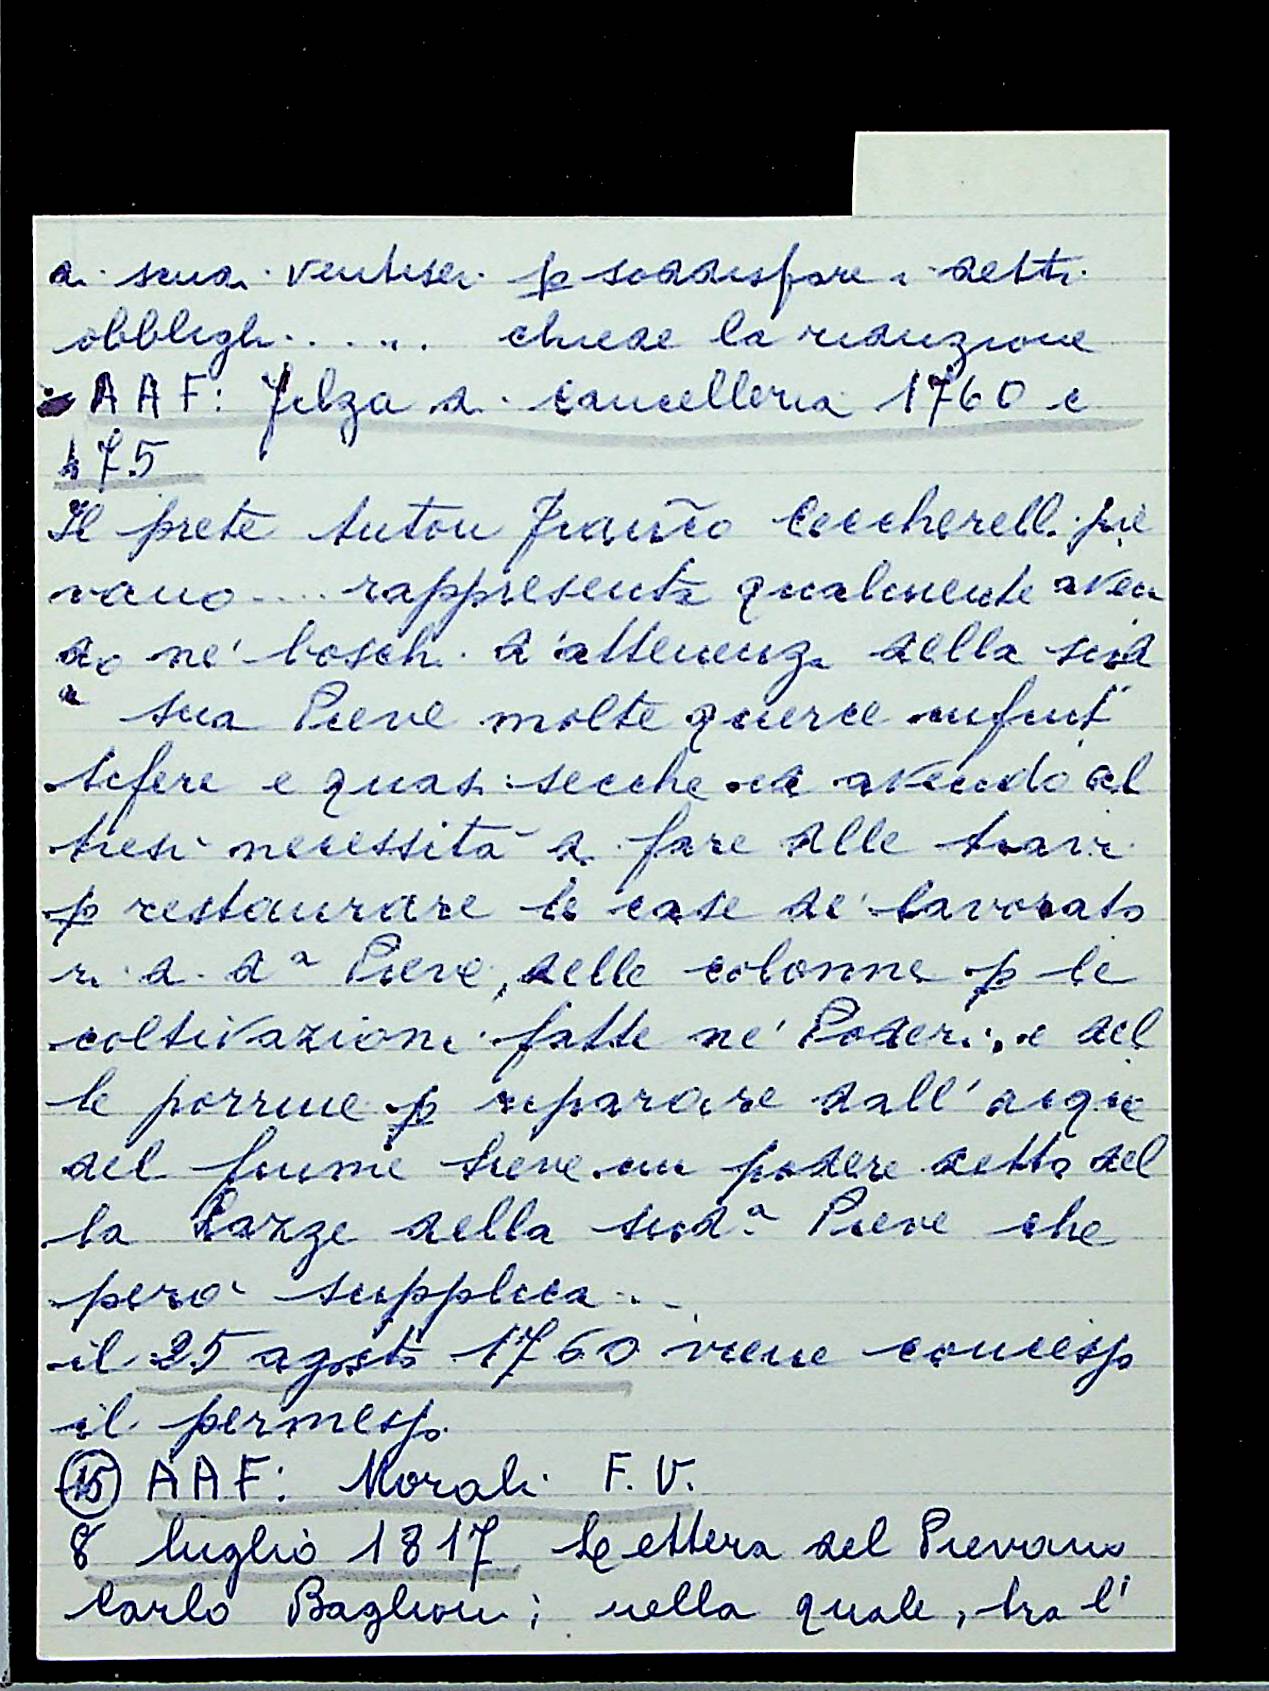 di scudi ventisei p soddisfare i detti
obblighi...... chiede la riduzione
AAF: Filza di cancelleria 1760 c
175
Il prete Anton Franco Ceccherelli pie
vano.... rappresenta qualmente aven
do ne' boschi d'attenenza della sud
a sua Pieve molte querce infrut
tifere e quasi secche ed avendo al
tresì necessità di fare delle travi
p restaurare le case de' lavorato
ri di da Pieve, delle colonne p le
coltivazioni fatte ne' Poderi, e del
le porrine p riparare dall'acque
del fiume Sieve un podere detto del
la della suda Pieve che
però supplica...
il 25 agosto 1760 viene concesso
il permesso.
15 AAF: Morali F.V.
8 luglio 1817 Lettera del Pievano
Carlo Baglioni; nella quale, tra l'